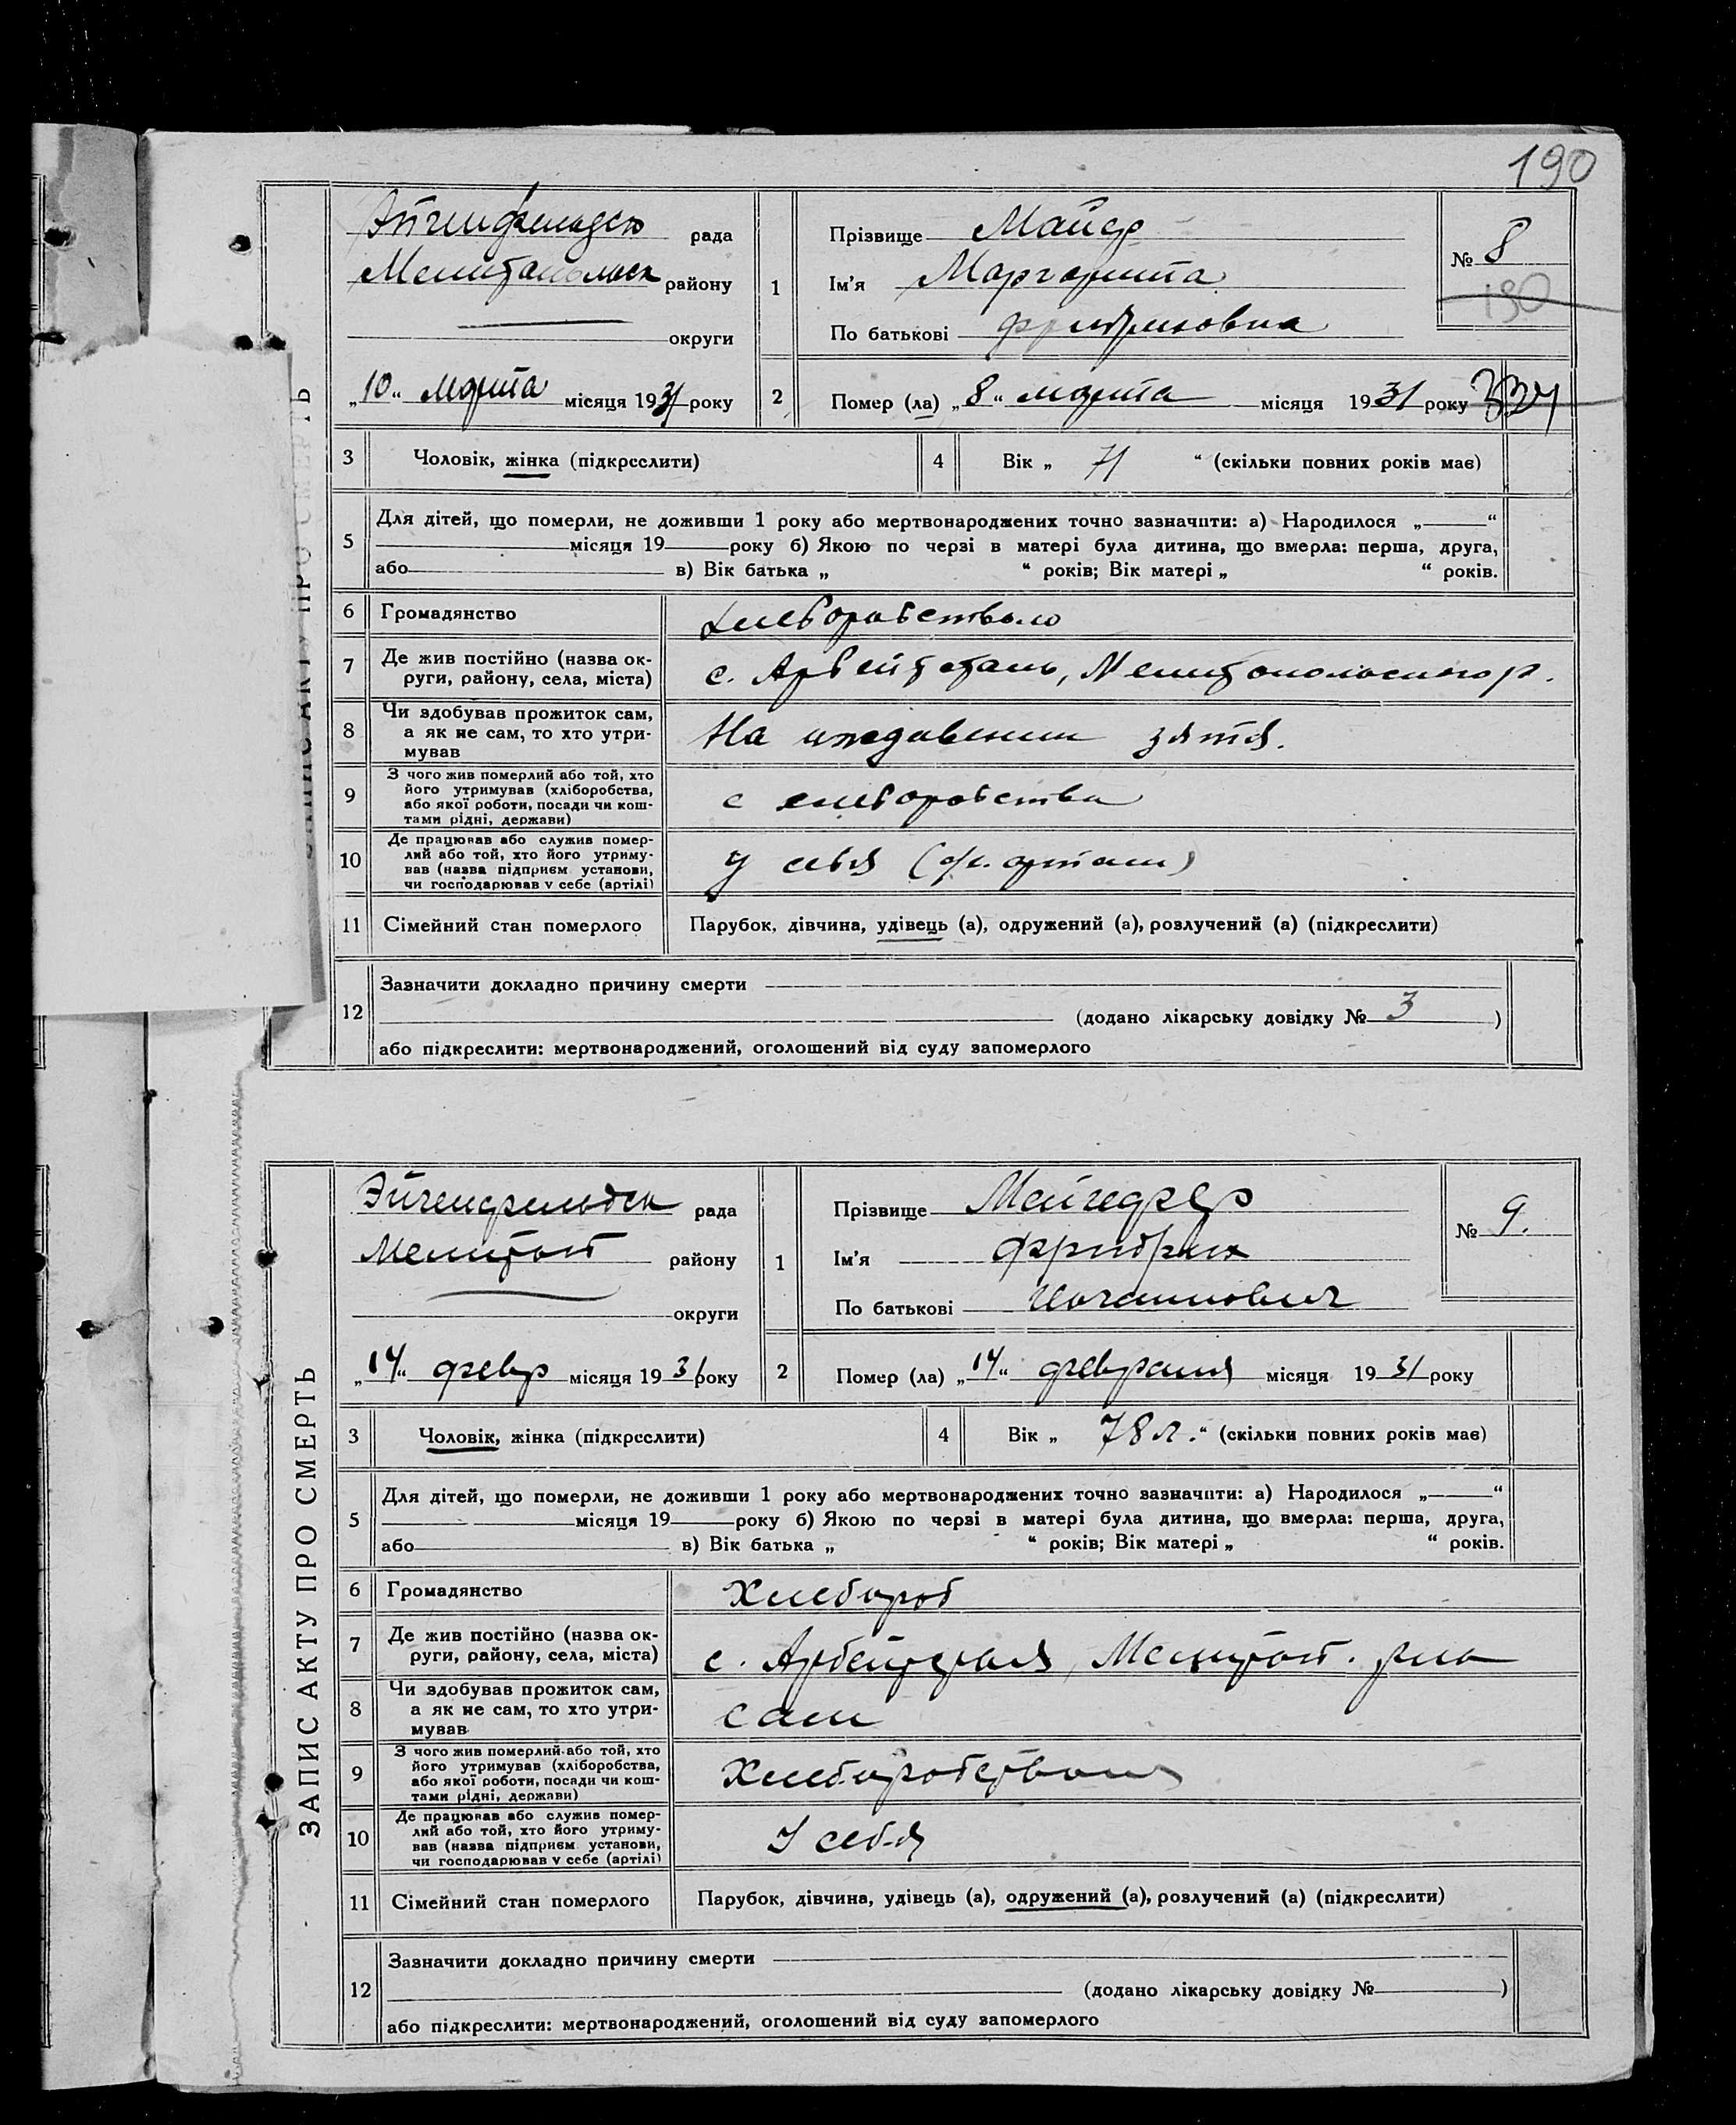 190
рада
району
округи
„10“ марта місяця 1931 року
1
Прізвище Майер
Ім'я Маргарита
По батькові Фридриховна
№ 8
190
2
Помер (ла) „8“ марта місяця 1931 року
334
3
Чоловік, жінка (підкреслити)
4
Вік „ 71 “ (скільки повних років має)
5
Для дітей, що померли, не доживши 1 року або мертвонароджених точно зазначити: а) Народилося „ “
місяця 19 року б) Якою по черзі в матері була дитина, що вмерла: перша, друга,
або в) Вік батька „ “ років; Вік матері „ “ років.
6
Громадянство
7
Де жив постійно (назва ок-
руги, району, села, міста)
с.
8
Чи здобував прожиток сам,
а як не сам, то хто утри-
мував
На иждивении зятя.
9
З чого жив померлий або той, хто
його утримував (хліборобства,
або якої роботи, посади чи кош-
тами рідні, держави)
с хлеборобства
10
Де працював або служив помер-
лий або той, хто його утриму-
вав (назва підприєм установи,
чи господарював у себе (артілі)
У себя
11
Сімейний стан померлого
Парубок, дівчина, удівець (а), одружений (а), розлучений (а) (підкреслити)
12
Зазначити докладно причину смерти
(додано лікарську довідку № 3 )
або підкреслити: мертвонароджений, оголошений від суду запомерлого
ЗАПИС АКТУ ПРО СМЕРТЬ
Эйгенфельдск рада
Мелитоп району
округи
„14“ февр місяця 1931 року
1
Прізвище
Ім'я Фридрих
По батькові
№ 9.
2
Помер (ла) „14“ февраля місяця 1931 року
3
Чоловік, жінка (підкреслити)
4
Вік „ 78 л. “ (скільки повних років має)
5
Для дітей, що померли, не доживши 1 року або мертвонароджених точно зазначити: а) Народилося „ “
місяця 19 року б) Якою по черзі в матері була дитина, що вмерла: перша, друга,
або в) Вік батька „ “ років; Вік матері „ “ років.
6
Громадянство
Хлебороб
7
Де жив постійно (назва ок-
руги, району, села, міста)
с. Мелитоп.
8
Чи здобував прожиток сам,
а як не сам, то хто утри-
мував
Сам
9
З чого жив померлий або той, хто
його утримував (хліборобства,
або якої роботи, посади чи кош-
тами рідні, держави)
10
Де працював або служив помер-
лий або той, хто його утриму-
вав (назва підприєм установи,
чи господарював у себе (артілі)
У себя
11
Сімейний стан померлого
Парубок, дівчина, удівець (а), одружений (а), розлучений (а) (підкреслити)
12
Зазначити докладно причину смерти
(додано лікарську довідку № )
або підкреслити: мертвонароджений, оголошений від суду запомерлого